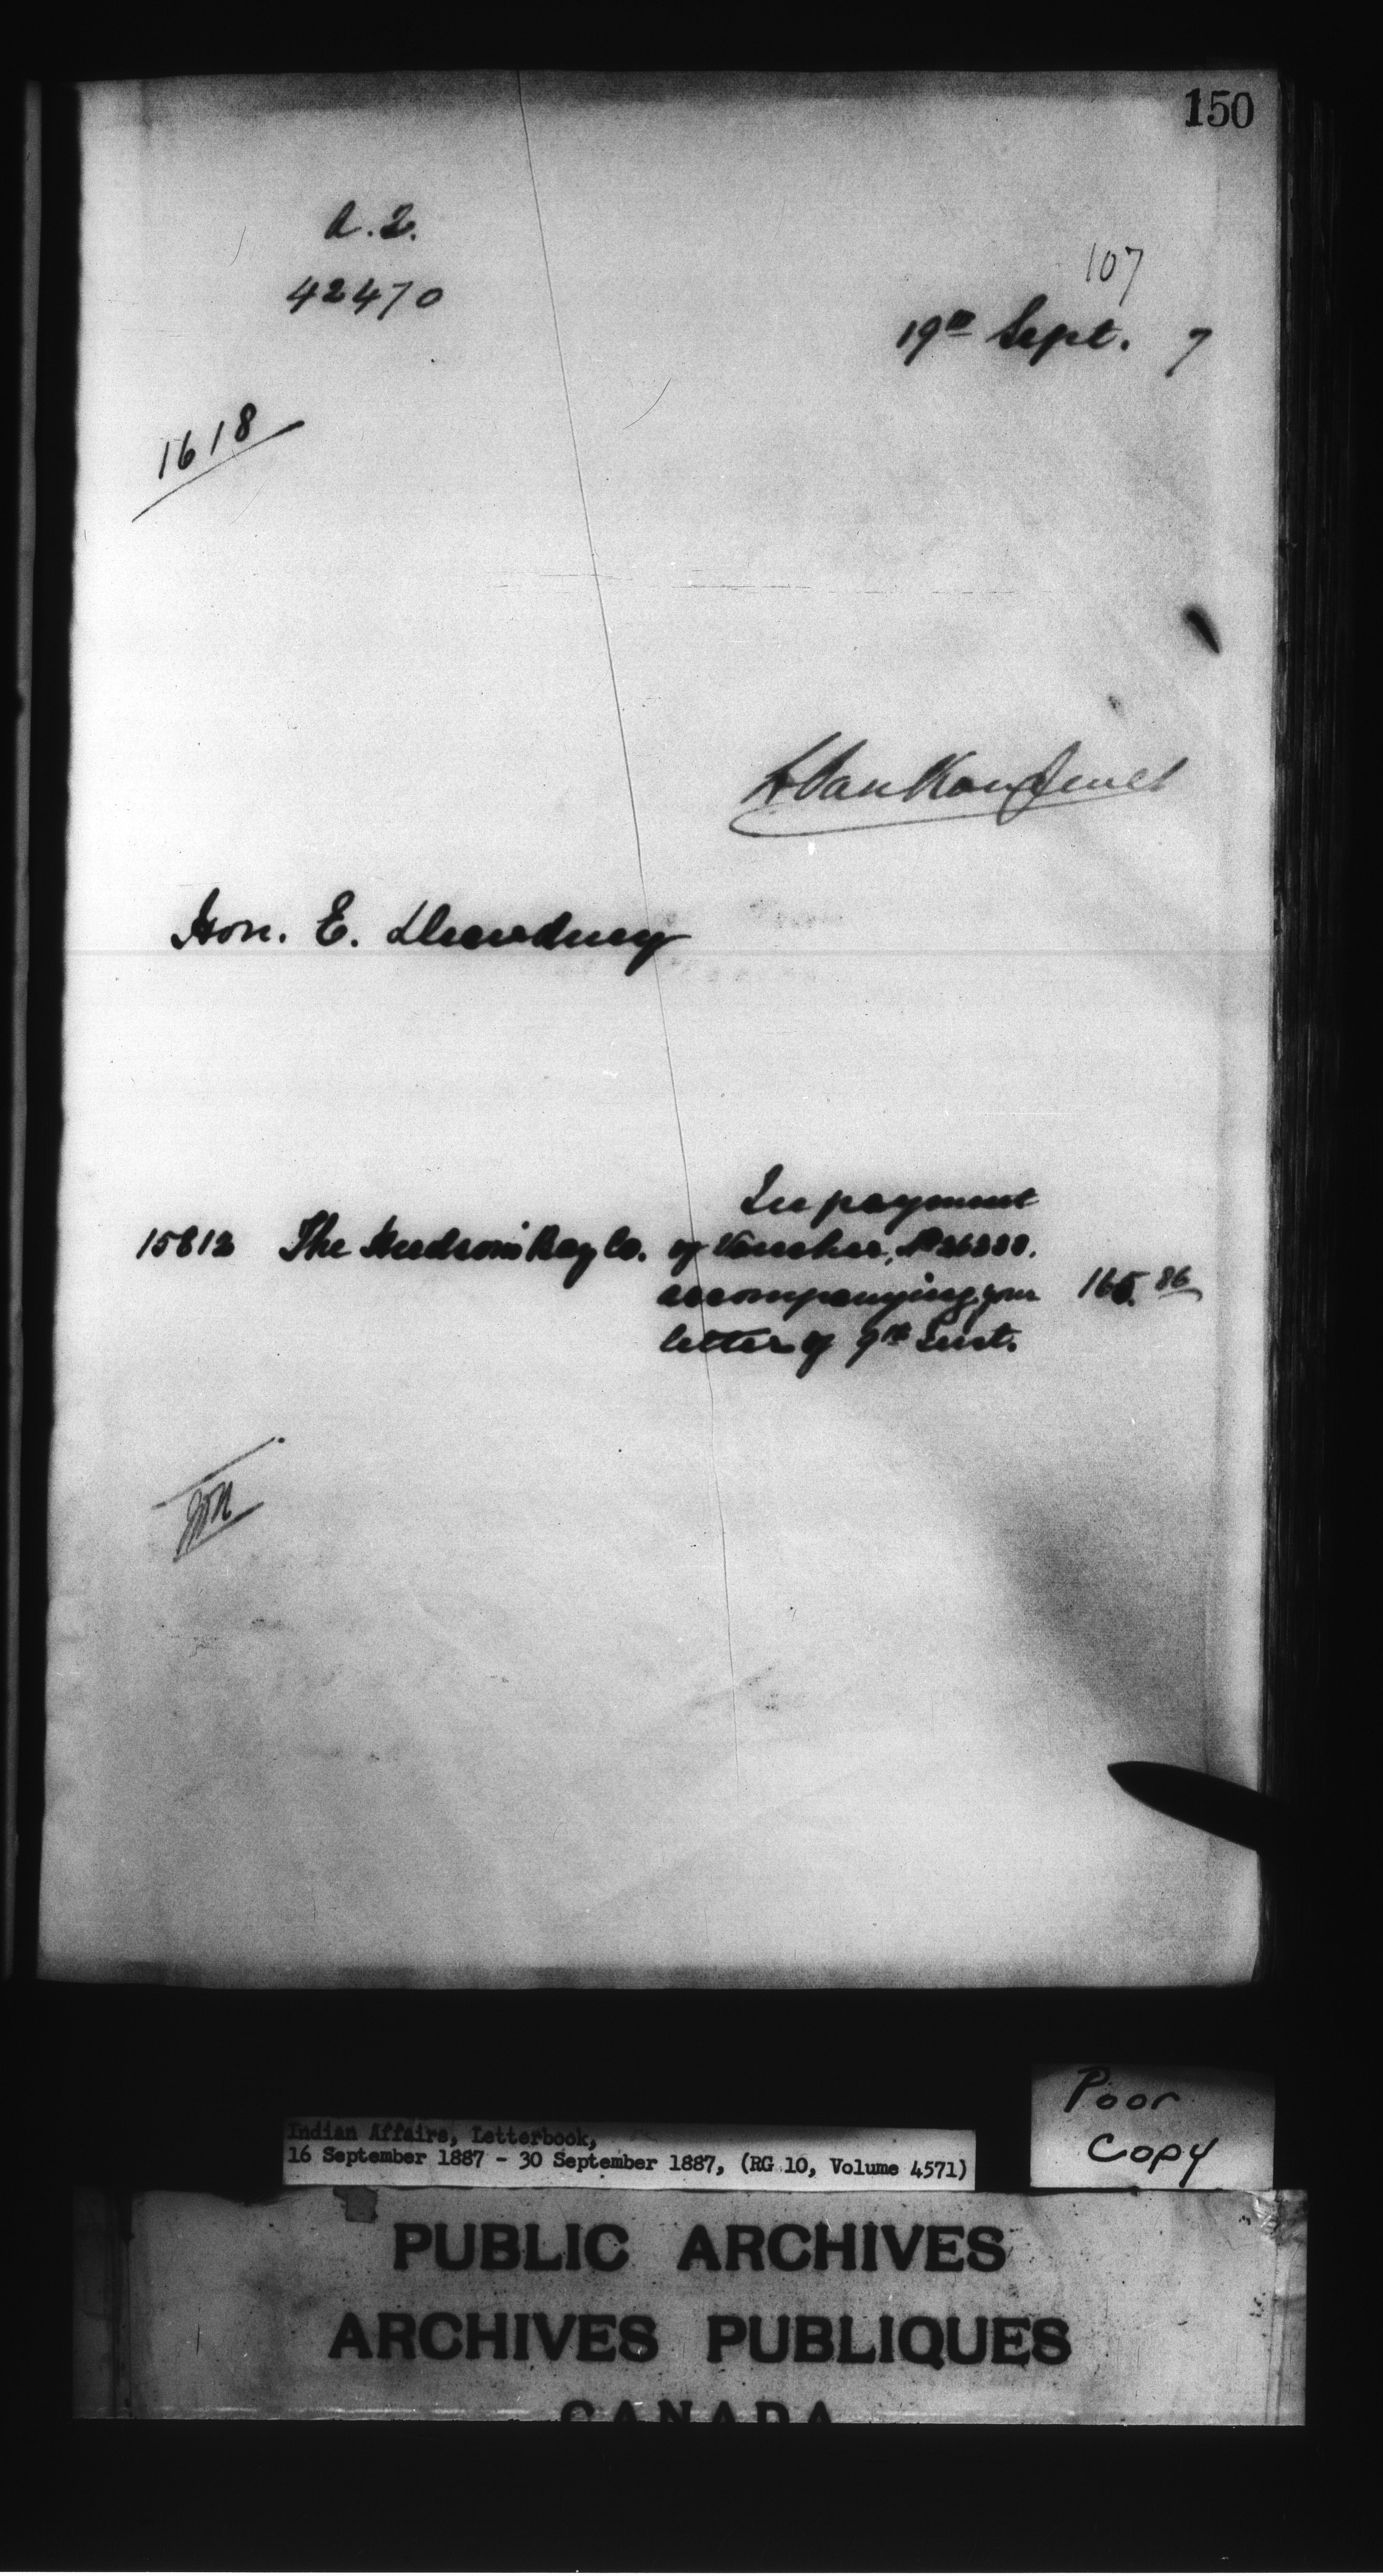 150
A.2.
42470
107
19th Sept. 7
1618
L Van Koughnet
Hon. E. Dewdney
In payment
15812 The Hudson's Bay Co. of Voucher,
accompanying your 165.86
letter of 9th Inst.
Poor
Copy
Indian Affairs, Letterbook,
16 September 1887 - 30 September 1887, (RG 10, Volume 4571)
PUBLIC ARCHIVES
ARCHIVES PUBLIQUES
CANADA